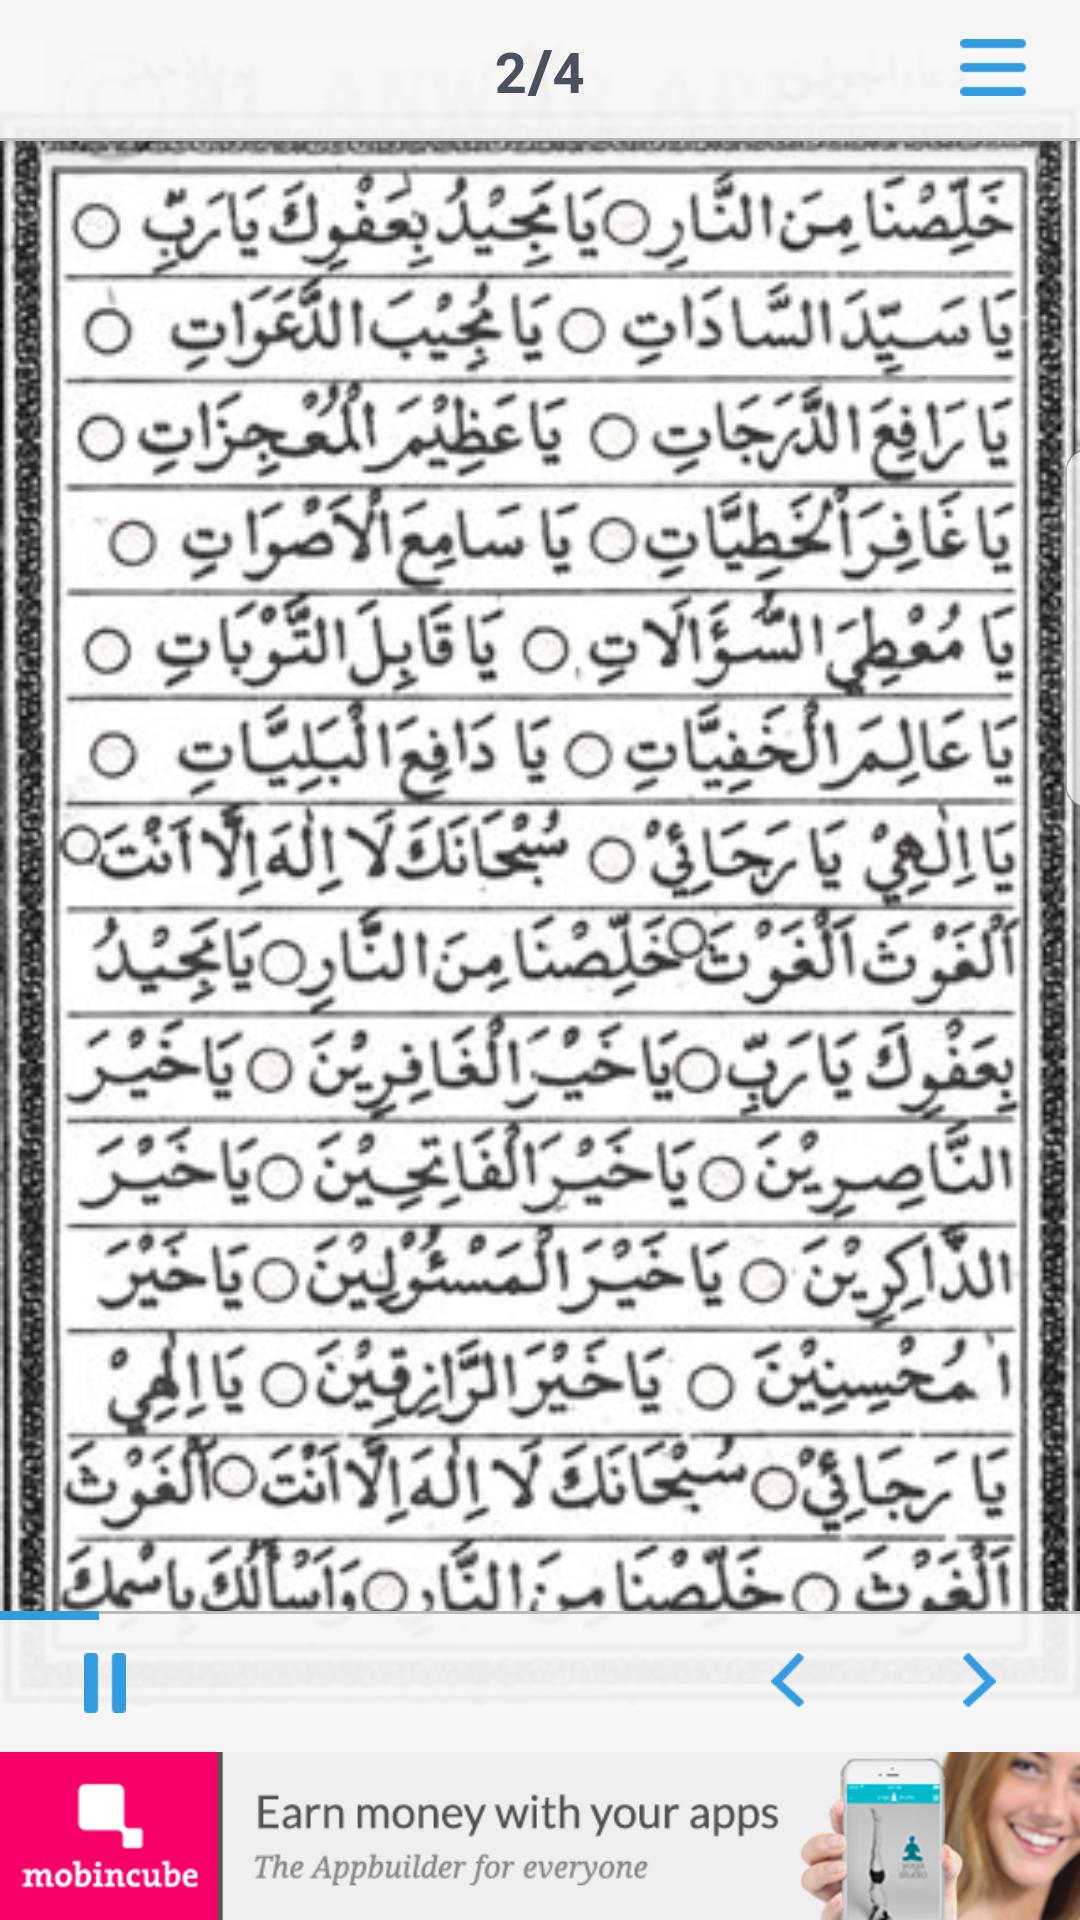 2/4
خَلِّصْنَا مِنَ النَّارِ ○ يَا مَجِيْدُ بِعَفْوِكَ يَارَبِّ ○
يَا سَيِّدَ السَّادَاتِ ○ يَا مُجِيْبَ الدَّعَوَاتِ ○
يَا رَافِعَ الدَّرَجَاتِ ○ يَا عَظِيْمَ الْمُعْجِزَاتِ ○
يَا غَافِرَ الْخَطِيَّاتِ ○ يَا سَامِعَ الْاَصْوَاتِ ○
يَا مُعْطِيَ السُّؤَالَاتِ ○ يَا قَابِلَ التَّوْبَاتِ ○
يَا عَالِمَ الْخَفِيَّاتِ ○ يَا دَافِعَ الْبَلِيَّاتِ ○
يَا اِلٰهِيْ يَا رَجَائِيْ ○ سُبْحَانَكَ لَا اِلٰهَ اِلَّا اَنْتَ ○
اَلْغَوْثَ اَلْغَوْثَ ○ خَلِّصْنَا مِنَ النَّارِ ○ يَا مَجِيْدُ
بِعَفْوِكَ يَا رَبِّ ○ يَا خَيْرَ الْغَافِرِيْنَ ○ يَا خَيْرَ
النَّاصِرِيْنَ ○ يَا خَيْرَ الْفَاتِحِيْنَ ○ يَا خَيْرَ
الذَّاكِرِيْنَ ○ يَا خَيْرَ الْمَسْئُوْلِيْنَ ○ يَا خَيْرَ
ا مُحْسِنِيْنَ ○ يَا خَيْرَ الرَّازِقِيْنَ ○ يَا اِلٰهِيْ
يَا رَجَائِيْ ○ سُبْحَانَكَ لَا اِلٰهَ اِلَّا اَنْتَ ○ اَلْغَوْثَ
اَلْغَوْثَ ○ خَلِّصْنَا مِنَ النَّارِ ○ وَاَسْأَلُكَ بِاسْمِكَ
mobincube
Earn money with your apps
The Appbuilder for everyone